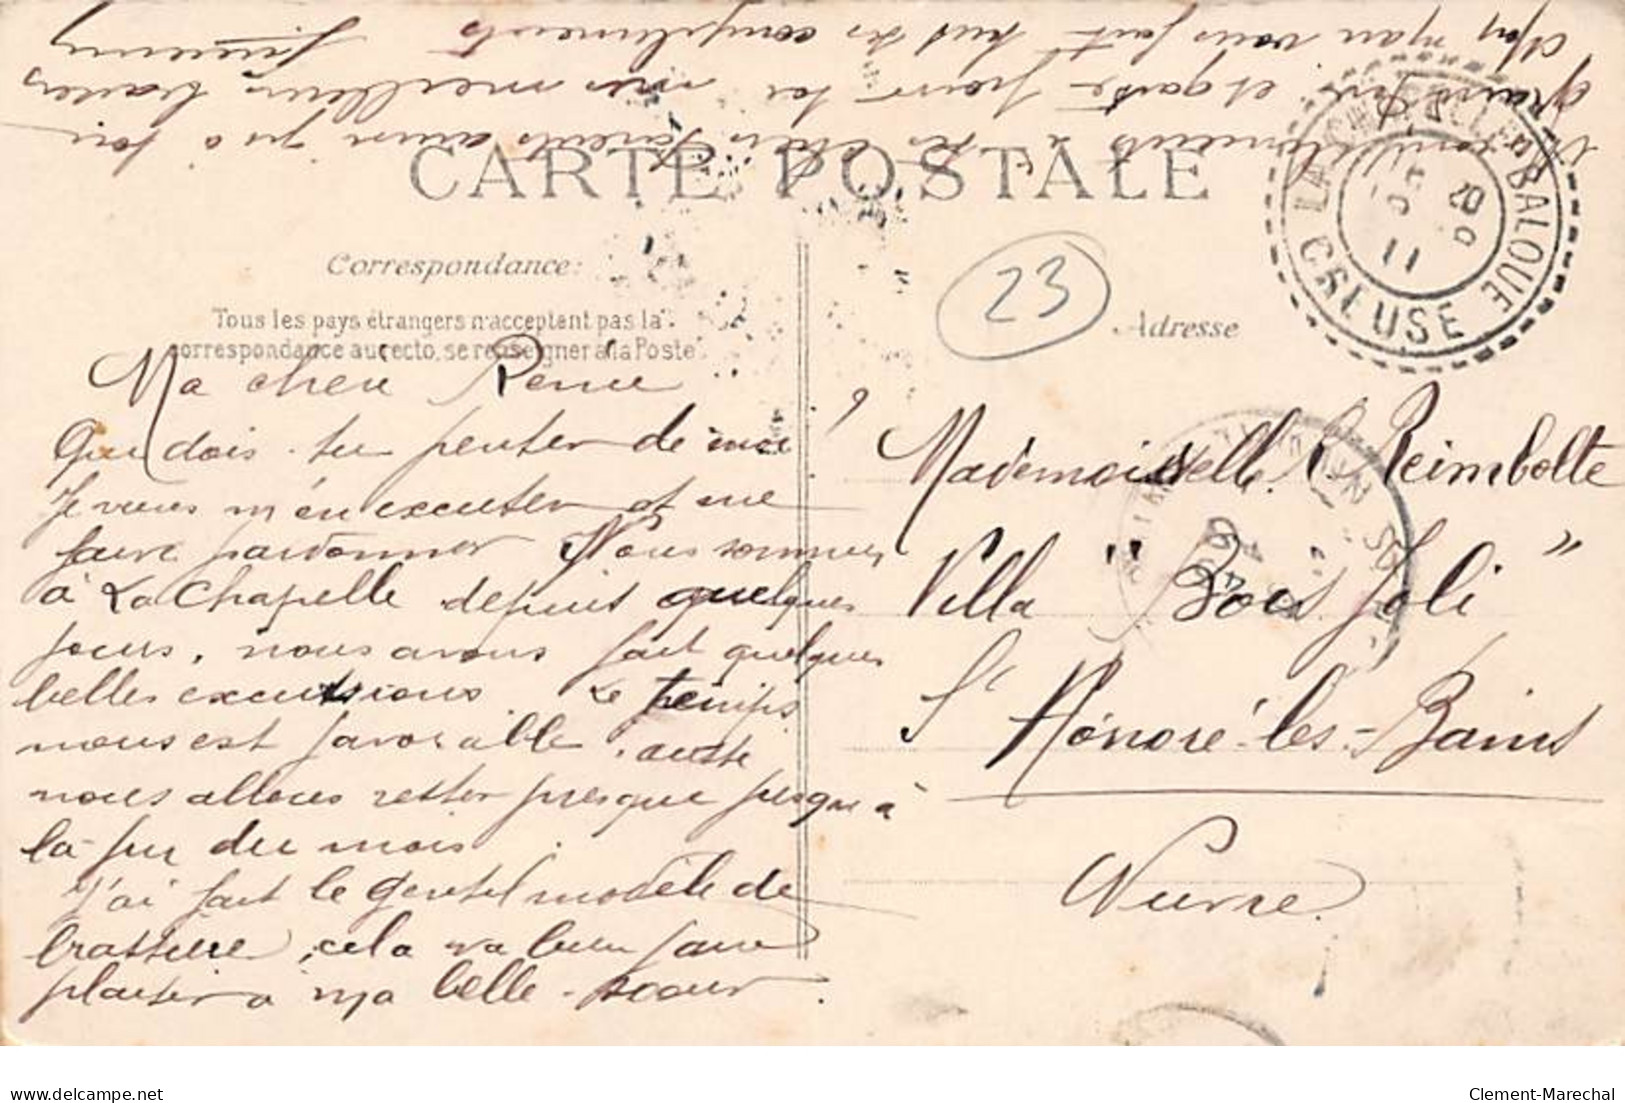 CARTE POSTALE
Correspondance:
Tous les pays étrangers n'acceptent pas la
correspondance au recto, se renseigner à la Poste
23
Adresse
LA CHAPELLE BALOUE
CREUSE
11
20
Ma cheu Renee
Que dois-tu penser de moi
Je viens m'en excuser et me
faire pardonner Nous sommes
à La Chapelle depuis quelques
jours, nous avons fait quelques
belles excursions. Le temps
nous est favorable, aussi
nous allons rester presque jusqu'à
la fin du mois.
J'ai fait le gentil modèle de
brassière, cela va bien faire
plaisir à ma belle-soeur.
Mon mari vous fait tous ses compliments
grand-père et garde pour toi mes meilleurs baisers
à tes chers parents ainsi qu'à ton
Mademoiselle R. Reimbolte
Villa "Bois Joli"
St Honoré-les-Bains
Nievre.
www.delcampe.net
Clement-Marechal